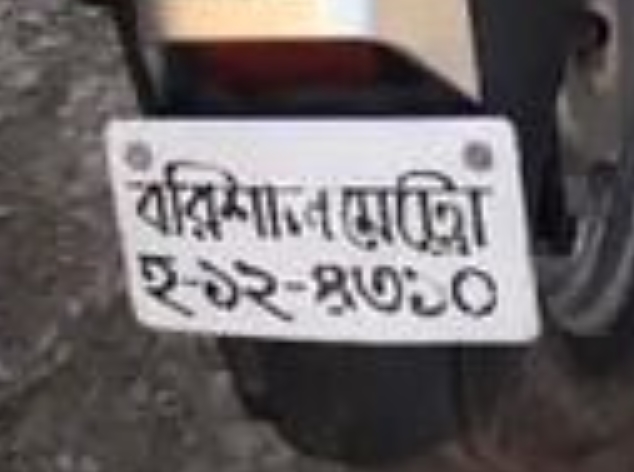 বরিশাল মেট্রো
হ-১২-৪৩১০